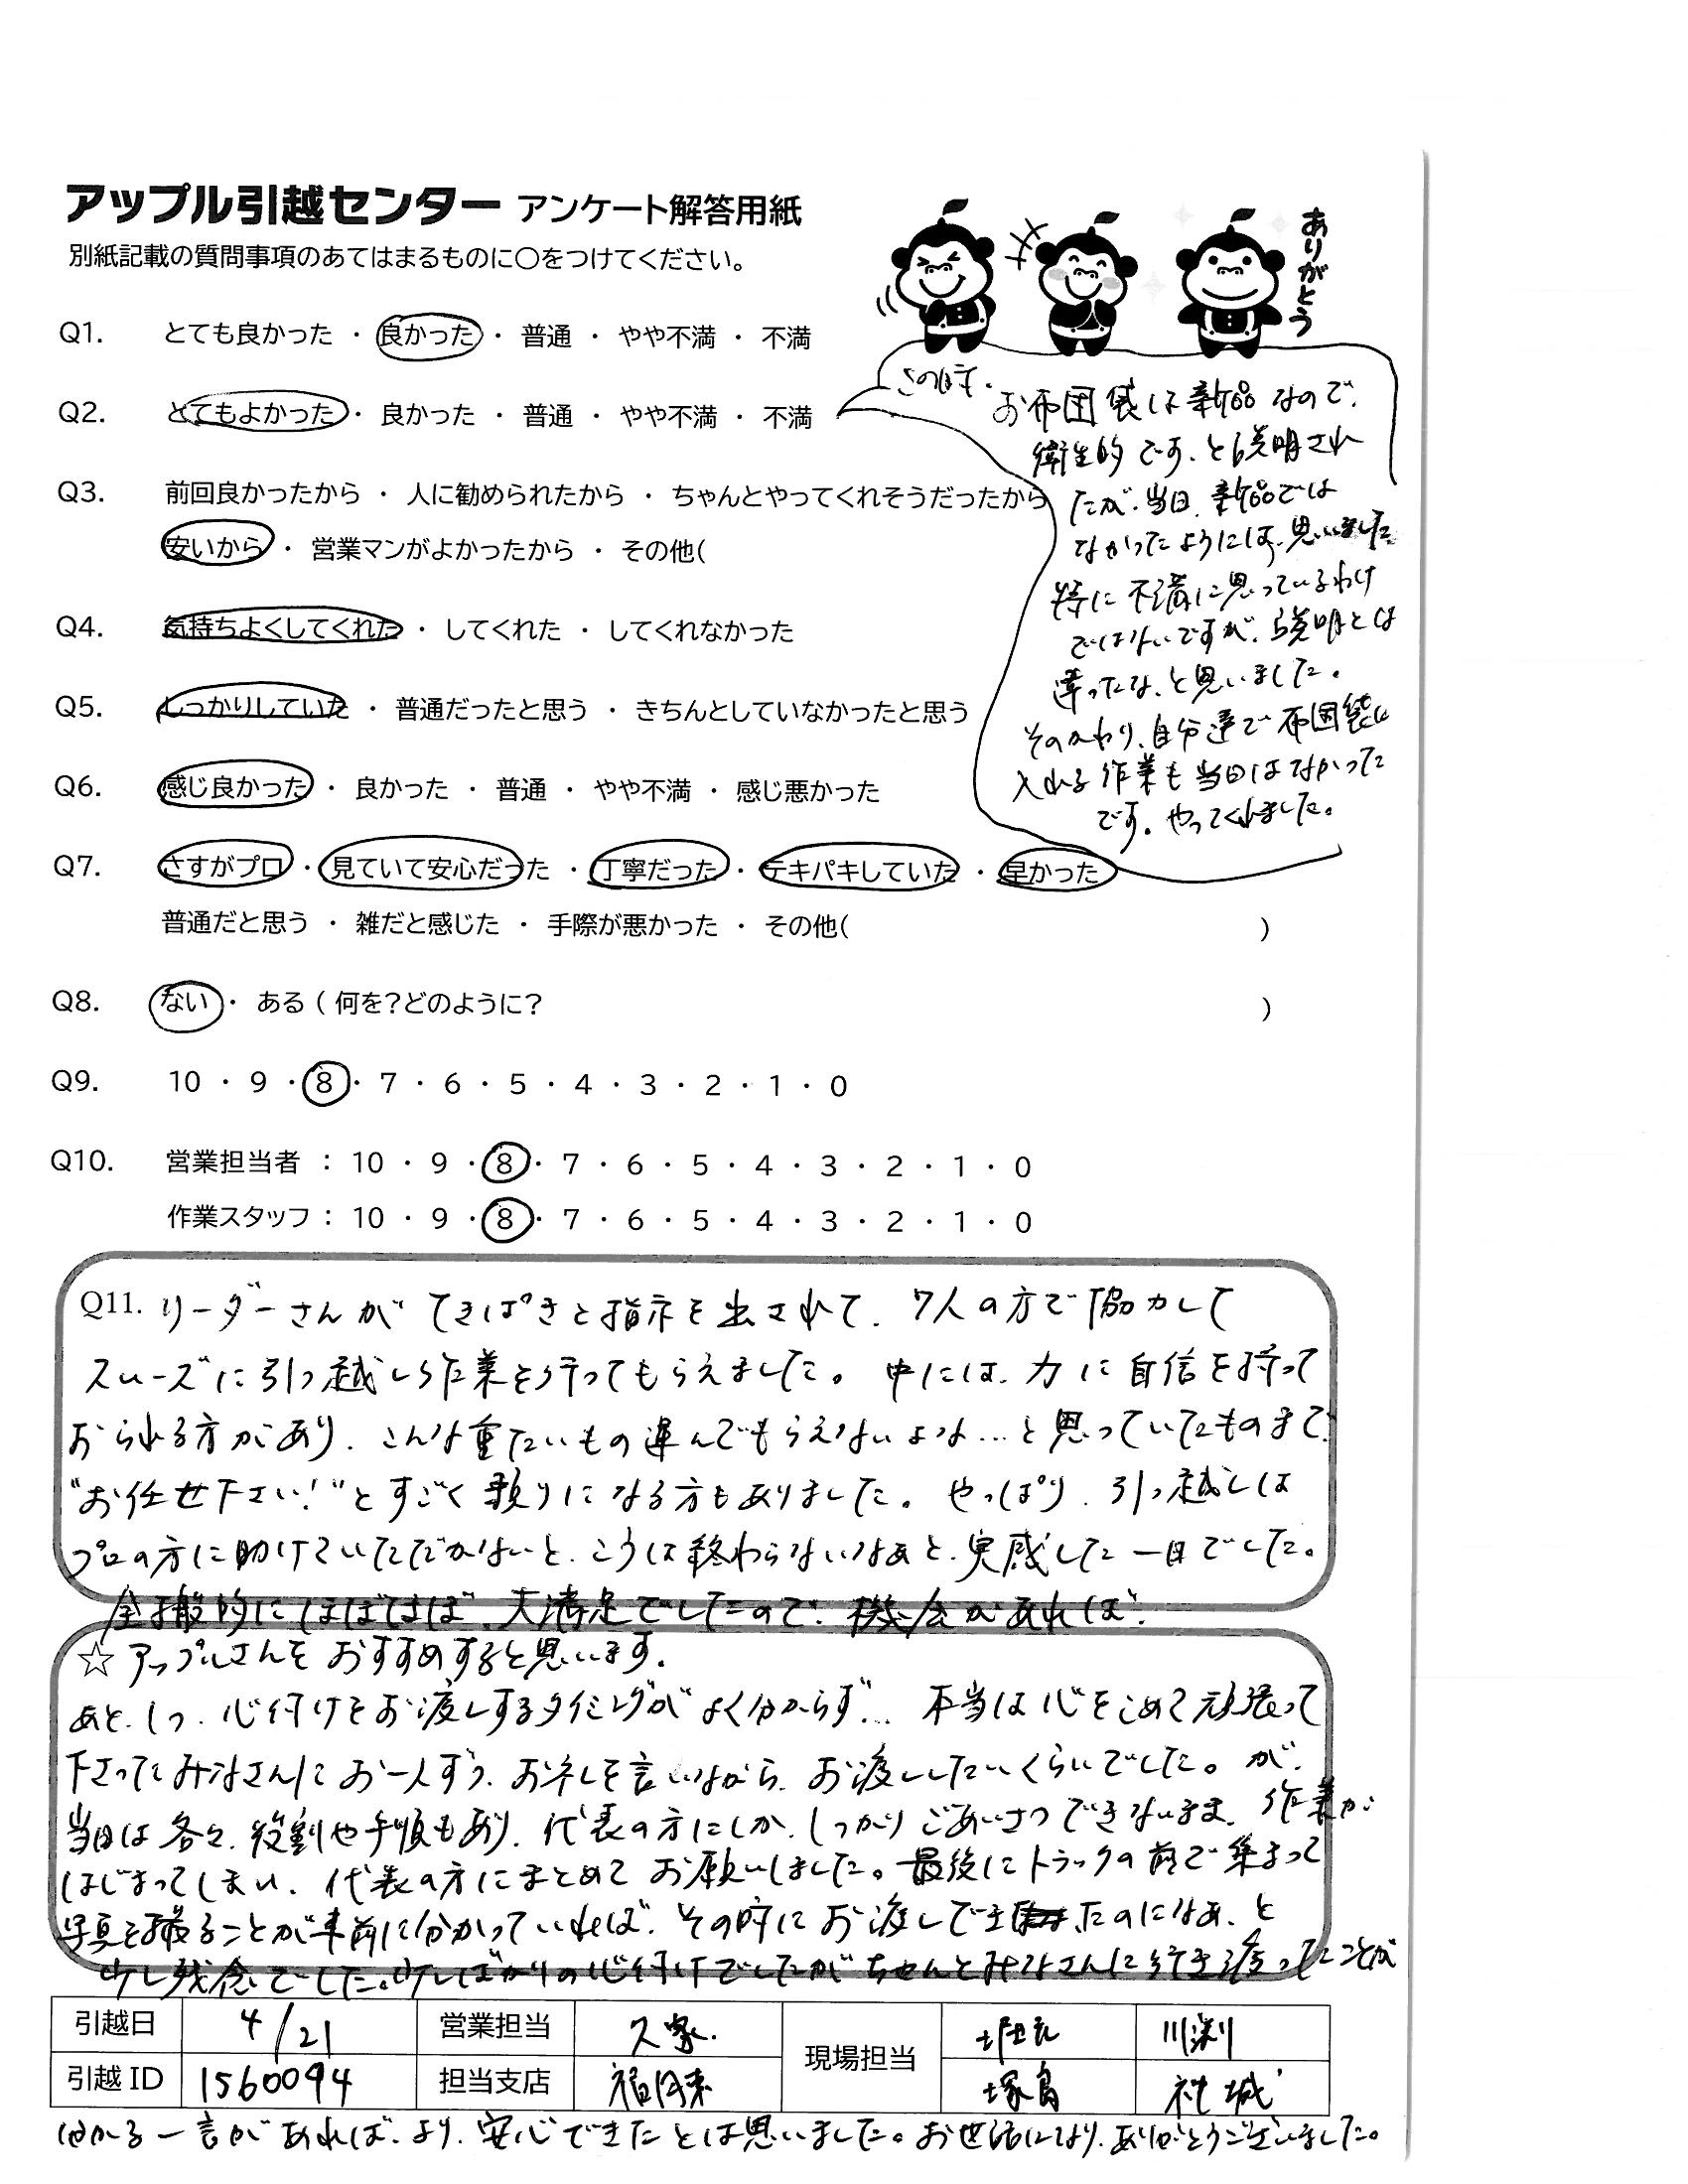 アップル引越センター アンケート解答用紙
別紙記載の質問事項のあてはまるものに○をつけてください。
ありがとう
Q1. とても良かった ・ 良かった ・ 普通 ・ やや不満 ・ 不満
Q2. とてもよかった ・ 良かった ・ 普通 ・ やや不満 ・ 不満
Q3. 前回良かったから ・ 人に勧められたから ・ ちゃんとやってくれそうだったから
安いから ・ 営業マンがよかったから ・ その他(
Q4. 気持ちよくしてくれた ・ してくれた ・ してくれなかった
Q5. しっかりしていた ・ 普通だったと思う ・ きちんとしていなかったと思う
Q6. 感じ良かった ・ 良かった ・ 普通 ・ やや不満 ・ 感じ悪かった
Q7. さすがプロ ・ 見ていて安心だった ・ 丁寧だった ・ テキパキしていた ・ 早かった
普通だと思う ・ 雑だと感じた ・ 手際が悪かった ・ その他( )
Q8. ない ・ ある ( 何を?どのように? )
Q9. 10 ・ 9 ・ 8 ・ 7 ・ 6 ・ 5 ・ 4 ・ 3 ・ 2 ・ 1 ・ 0
Q10. 営業担当者 : 10 ・ 9 ・ 8 ・ 7 ・ 6 ・ 5 ・ 4 ・ 3 ・ 2 ・ 1 ・ 0
作業スタッフ : 10 ・ 9 ・ 8 ・ 7 ・ 6 ・ 5 ・ 4 ・ 3 ・ 2 ・ 1 ・ 0
この時、
お布団袋は新品なので、
衛生的です、と説明され
たが、当日、新品では
なかったようには、思いました
特に不満に思っているわけ
ではないですが、説明とは
違ったな、と思いました。
そのかわり、自分達で布団袋に
入れる作業も当日はなかった
です。やってくれました。
Q11. リーダーさんがてきぱきと指示を出されて、7人の方で協力して
スムーズに引っ越し作業を行ってもらえました。中には、力に自信を持って
おられる方があり、こんな重たいもの運んでもらえないよな…と思っていたものまで、
"お任せ下さい!"とすごく頼りになる方もありました。やっぱり、引っ越しは
プロの方に助けていただかないと、こうは終わらないなぁと、実感した一日でした。
全般的にほぼほぼ、大満足でしたので、機会があれば、
☆アップルさんをおすすめすると思います。
あと、1つ、心付けをお渡しするタイミングがよく分からず… 本当は心をこめて頑張って
下さったみなさんにお一人ずつ、お礼を言いながら、お渡ししたいくらいでした。が、
当日は各々、役割や手順もあり、代表の方にしか、しっかりごあいさつできないまま、作業が
はじまってしまい、代表の方にまとめてお願いしました。最後にトラックの前で集まって
写真を撮ることが事前に分かっていれば、その時にお渡しできたのになぁ、と
少し残念でした。少しばかりの心付けでしたがちゃんとみなさんに行き渡ったことが
引越日 4/21 営業担当 久家 現場担当 川渕
引越ID 1560094 担当支店 福岡東 塚島
分かる一言があれば、より、安心できたとは思いました。お世話になり、ありがとうございました。